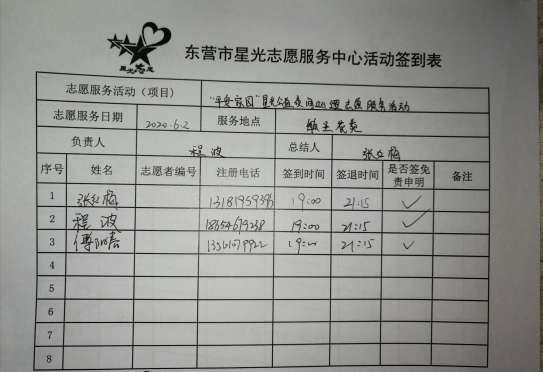 星光志愿
东营市星光志愿服务中心活动签到表
志愿服务活动（项目） "平安家园"星光公益夜间巡逻志愿服务活动
志愿服务日期 2020.6.2 服务地点
负责人 程波 总结人 张红梅
序号 姓名 志愿者编号 注册电话 签到时间 签退时间 是否签免责申明 备注
1 张红梅 13181959396 19:00 21:15 ✓
2 程波 18654679238 19:00 21:15 ✓
3 傅 19:00 21:15 ✓
4
5
6
7
8